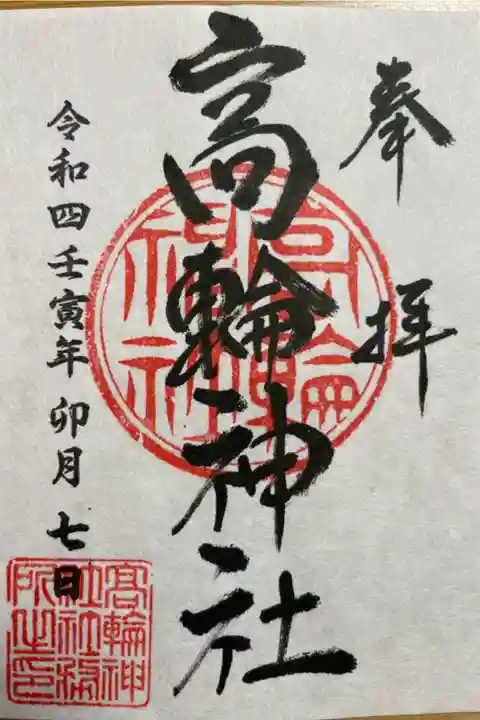 奉拝
高輪神社
高輪神社
令和四壬寅年卯月七日
高輪神社社務所之印